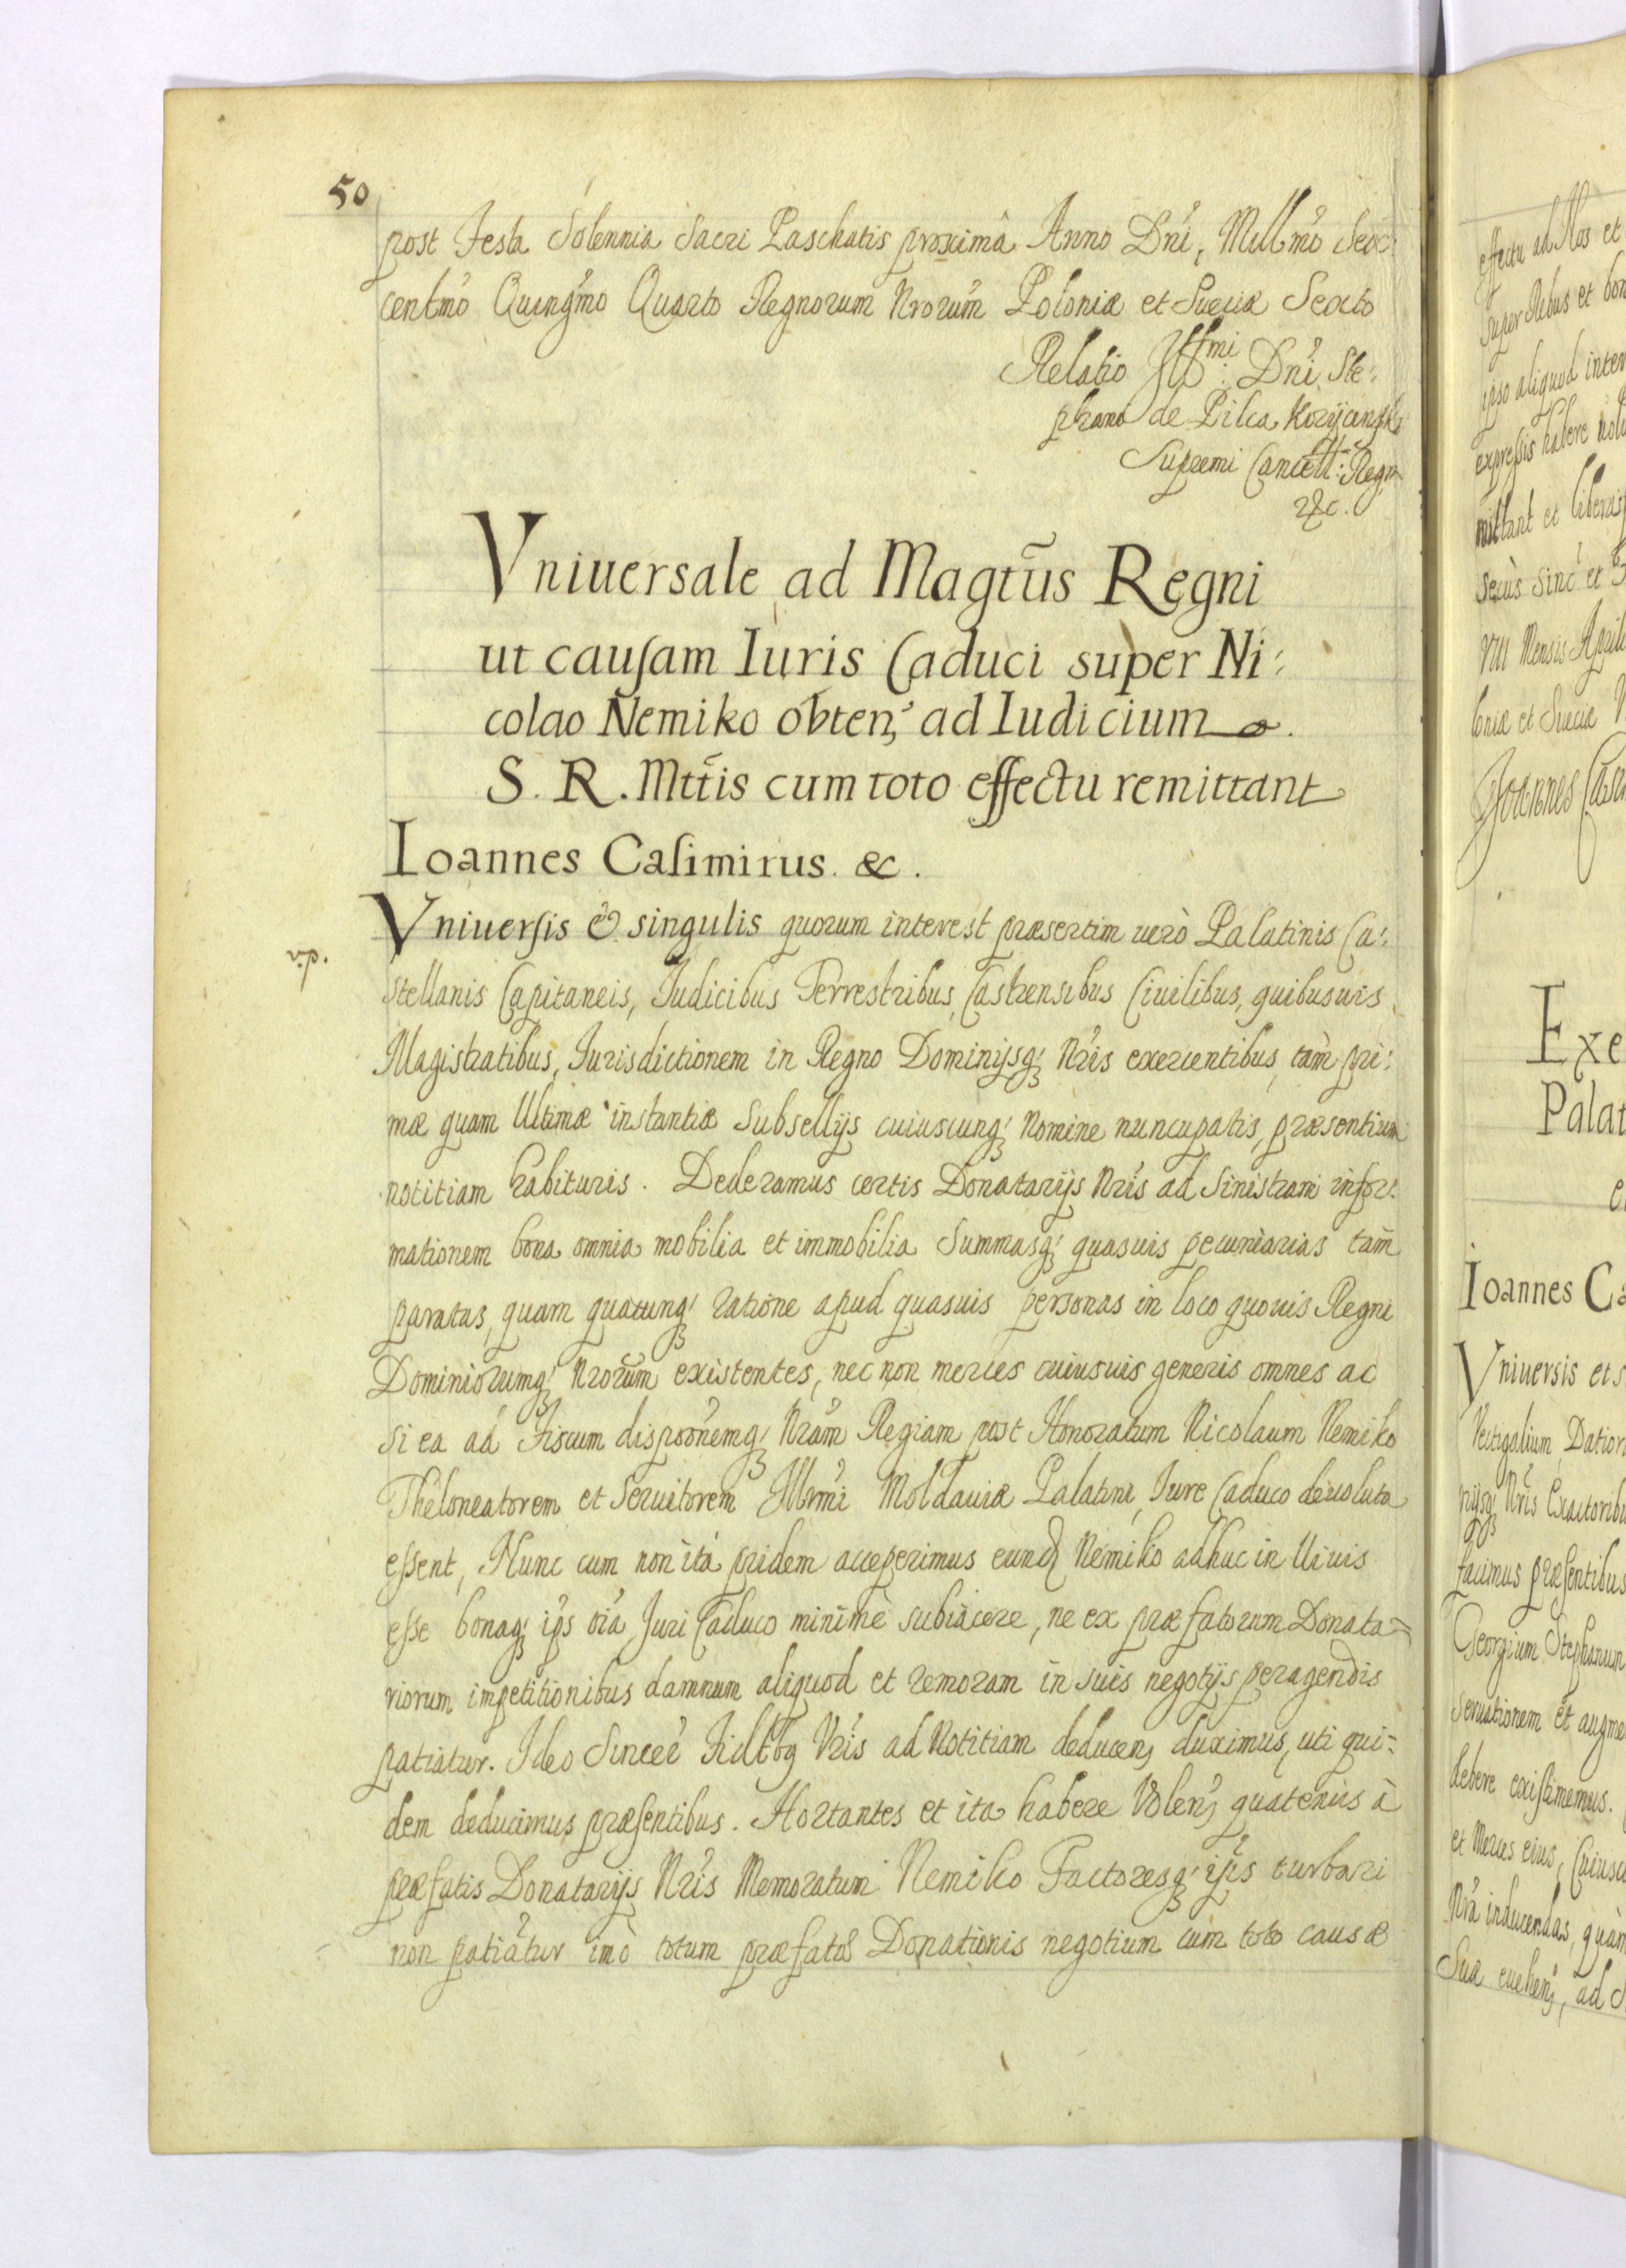 50
post Festa Solennia Sacri Paschatis proxima Anno Dni, Millmo Sex:
centmo Quinqmo Quarto Regnorum Nrorum Poloniæ et Sueciæ Sexto
Relatio Illmi: Dni Ste:
phani de Pilca Koryciński
Supremi Cancell: Regni
&c.
Vniuersale ad Magtus Regni
ut causam Iuris Caduci super Ni:
colao Nemiko obten, ad Iudicium
S. R. Mttis cum toto effectu remittant
Ioannes Casimirus. &c.
v.p.
Vniuersis & singulis quorum interest præsertim verò Palatinis Ca:
stellanis Capitaneis, Iudicibus Terrestribus, Castrensibus Ciuilibus, quibusuis
Magistratibus, Iurisdictionem in Regno Dominijsq; Nris exercentibus, tàm pri:
mæ quam Ultimæ instantiæ Subsellijs cuiuscunq; Nomine nuncupatis, præsentium
notitiam habituris. Dederamus certis Donatarijs Nris ad Sinistram infor:
mationem bona omnia mobilia et immobilia Summasq; quasuis pecuniarias tam
paratas, quam quacunq; ratione apud quasuis personas in loco quouis Regni
Dominiorumq; Nrorum existentes, nec non merces cuiusuis generis omnes ac
si ea ad Fiscum dispoonemq; Nram Regiam post Honoratum Nicolaum Nemiko
Theloneatorem et Seruitorem Illmi Moldauiæ Palatini, Iure Caduco deuoluta
essent, Nunc cum non ita pridem acceperimus eund Nemiko adhuc in Uiuis
esse bonaq; ips oia Juri Caduco minimè subiacere, ne ex præfatorum Donata=
riorum impetitionibus damnum aliquod et remoram in suis negotijs peragendis
patiatur. Ideo Sincer Fidtbq Vris ad Notitiam deducen, duximus, uti qui=
dem deducimus præsentibus. Hortantes et ita habere Volen, quatenus à
præfatis Donatarijs Nris Memoratum Nemiko Factoresq; ipsis turbari
non patiatur imò totum præfatæ Donationis negotium cum toto causæ
effectu ad Nos et
super Rebus et bon
ipso aliquod inter
expressis habere volu
mittant et liberas
secùs Sinc et
VIII Mensis Aprilis
loniæ et Sueciæ
Joannes Casim
Exe
Palat
Ioannes Ca
Vniuersis et s
Vectigalium, Dation
Nris Exactoribu
facimus præsentibus
Georgium Stephanum
seruationem et augme
debere existimemus.
et Merces eius, Cuiuscu
Nra inducendas, quàm
Sua euehen, ad S